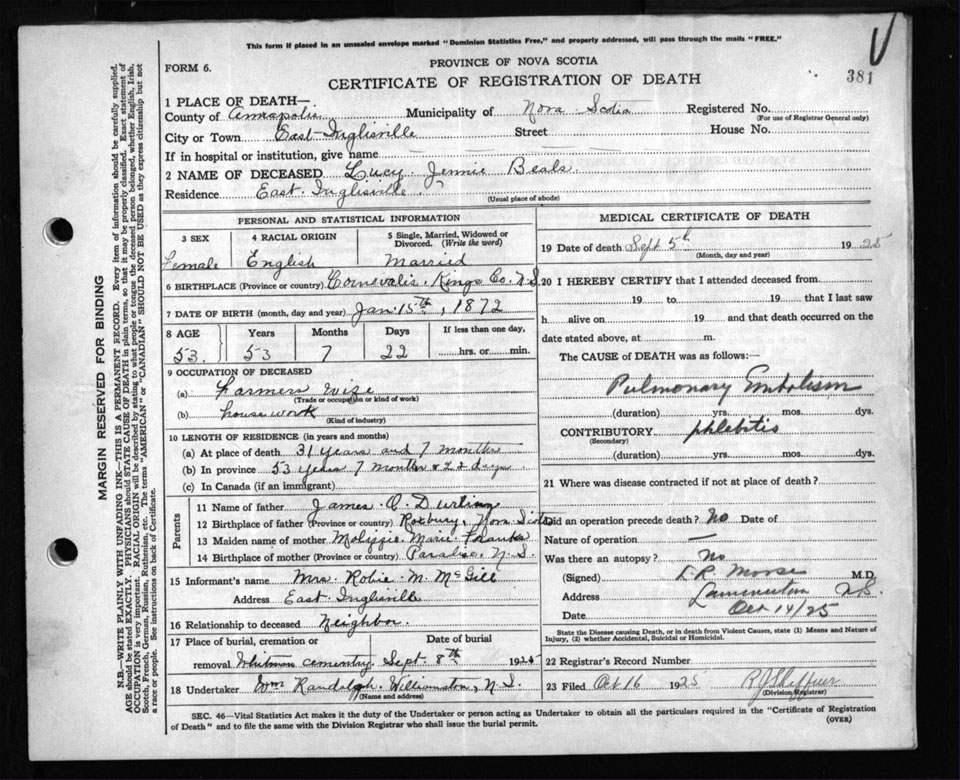 This form if placed in an unsealed envelope marked "Dominion Statistics Free," and properly addressed, will pass through the mails "FREE."
FORM 6.
PROVINCE OF NOVA SCOTIA
CERTIFICATE OF REGISTRATION OF DEATH
381
1 PLACE OF DEATH—
County of Annapolis Municipality of Nova Scotia Registered No.
(For use of Registrar General only)
City or Town East Inglisville Street House No.
If in hospital or institution, give name
2 NAME OF DECEASED Lucy Jennie Beals
Residence East Inglisville
(Usual place of abode)
PERSONAL AND STATISTICAL INFORMATION
3 SEX 4 RACIAL ORIGIN 5 Single, Married, Widowed or Divorced. (Write the word)
Female English Married
6 BIRTHPLACE (Province or country) Cornevalis. Kings Co. N.S.
7 DATE OF BIRTH (month, day and year) Jan. 15th, 1872
8 AGE Years Months Days If less than one day,
53. 53 7 22 hrs. or min.
9 OCCUPATION OF DECEASED
(a) Farmer Wife
(Trade or occupation or kind of work)
(b) house work
(Kind of industry)
10 LENGTH OF RESIDENCE (in years and months)
(a) At place of death 31 years and 7 months
(b) In province 53 years 7 months & 22 days
(c) In Canada (if an immigrant)
Parents
11 Name of father James O. Durling
12 Birthplace of father (Province or country) Roxbury, Nova Scotia
13 Maiden name of mother Marie
14 Birthplace of mother (Province or Country) Paradise N.S.
15 Informant's name Mrs. Robie M. McGill
Address East Inglisville
16 Relationship to deceased Neighbor.
17 Place of burial, cremation or Date of burial
removal Whitman cementry. Sept. 8th 1925
18 Undertaker Wm Randolph. Williamston, N.S.
(Name and address)
MEDICAL CERTIFICATE OF DEATH
19 Date of death Sept 5th 1925
(Month, day and year)
20 I HEREBY CERTIFY that I attended deceased from
19 to 19 that I last saw
h alive on 19 and that death occurred on the
date stated above, at m.
The CAUSE of DEATH was as follows:
Pulmonary Embolism
(duration) yrs. mos. dys.
CONTRIBUTORY phlebitis
(Secondary)
(duration) yrs. mos. dys.
21 Where was disease contracted if not at place of death?
Did an operation precede death? No Date of
Nature of operation —
Was there an autopsy? No
(Signed) L.R. Morse M.D.
Address N.S.
Date Oct 14/25
State the Disease causing Death, or in death from Violent Causes, state (1) Means and Nature of
Injury, (2) whether Accidental, Suicidal or Homicidal.
22 Registrar's Record Number
23 Filed Oct 16 1925
(Division Registrar)
SEC. 46—Vital Statistics Act makes it the duty of the Undertaker or person acting as Undertaker to obtain all the particulars required in the "Certificate of Registration
of Death" and to file the same with the Division Registrar who shall issue the burial permit. (OVER)
MARGIN RESERVED FOR BINDING
N.B.—WRITE PLAINLY WITH UNFADING INK—THIS IS A PERMANENT RECORD. Every item of information should be carefully supplied.
AGE should be stated EXACTLY. PHYSICIANS should STATE CAUSE OF DEATH in plain terms, so that it may be properly classified. Exact statement of
OCCUPATION is very important. RACIAL ORIGIN will be described by stating to what people or tongue the deceased person belonged, whether English, Irish,
Scotch, French, German, Russian, Ruthenian, etc. The terms "AMERICAN" or "CANADIAN" SHOULD NOT BE USED as they express citizenship but not
a race or people. See instructions on back of Certificate.